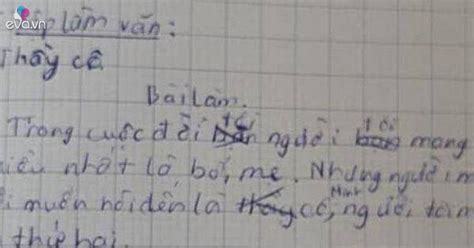 eva.vn
Tập làm văn:
Thầy cô
Bài làm.
Trong cuộc đời tôi người tôi mang
nhất là bố, mẹ. Nhưng người m
muốn nói đến là Minh cô, người
thứ hai